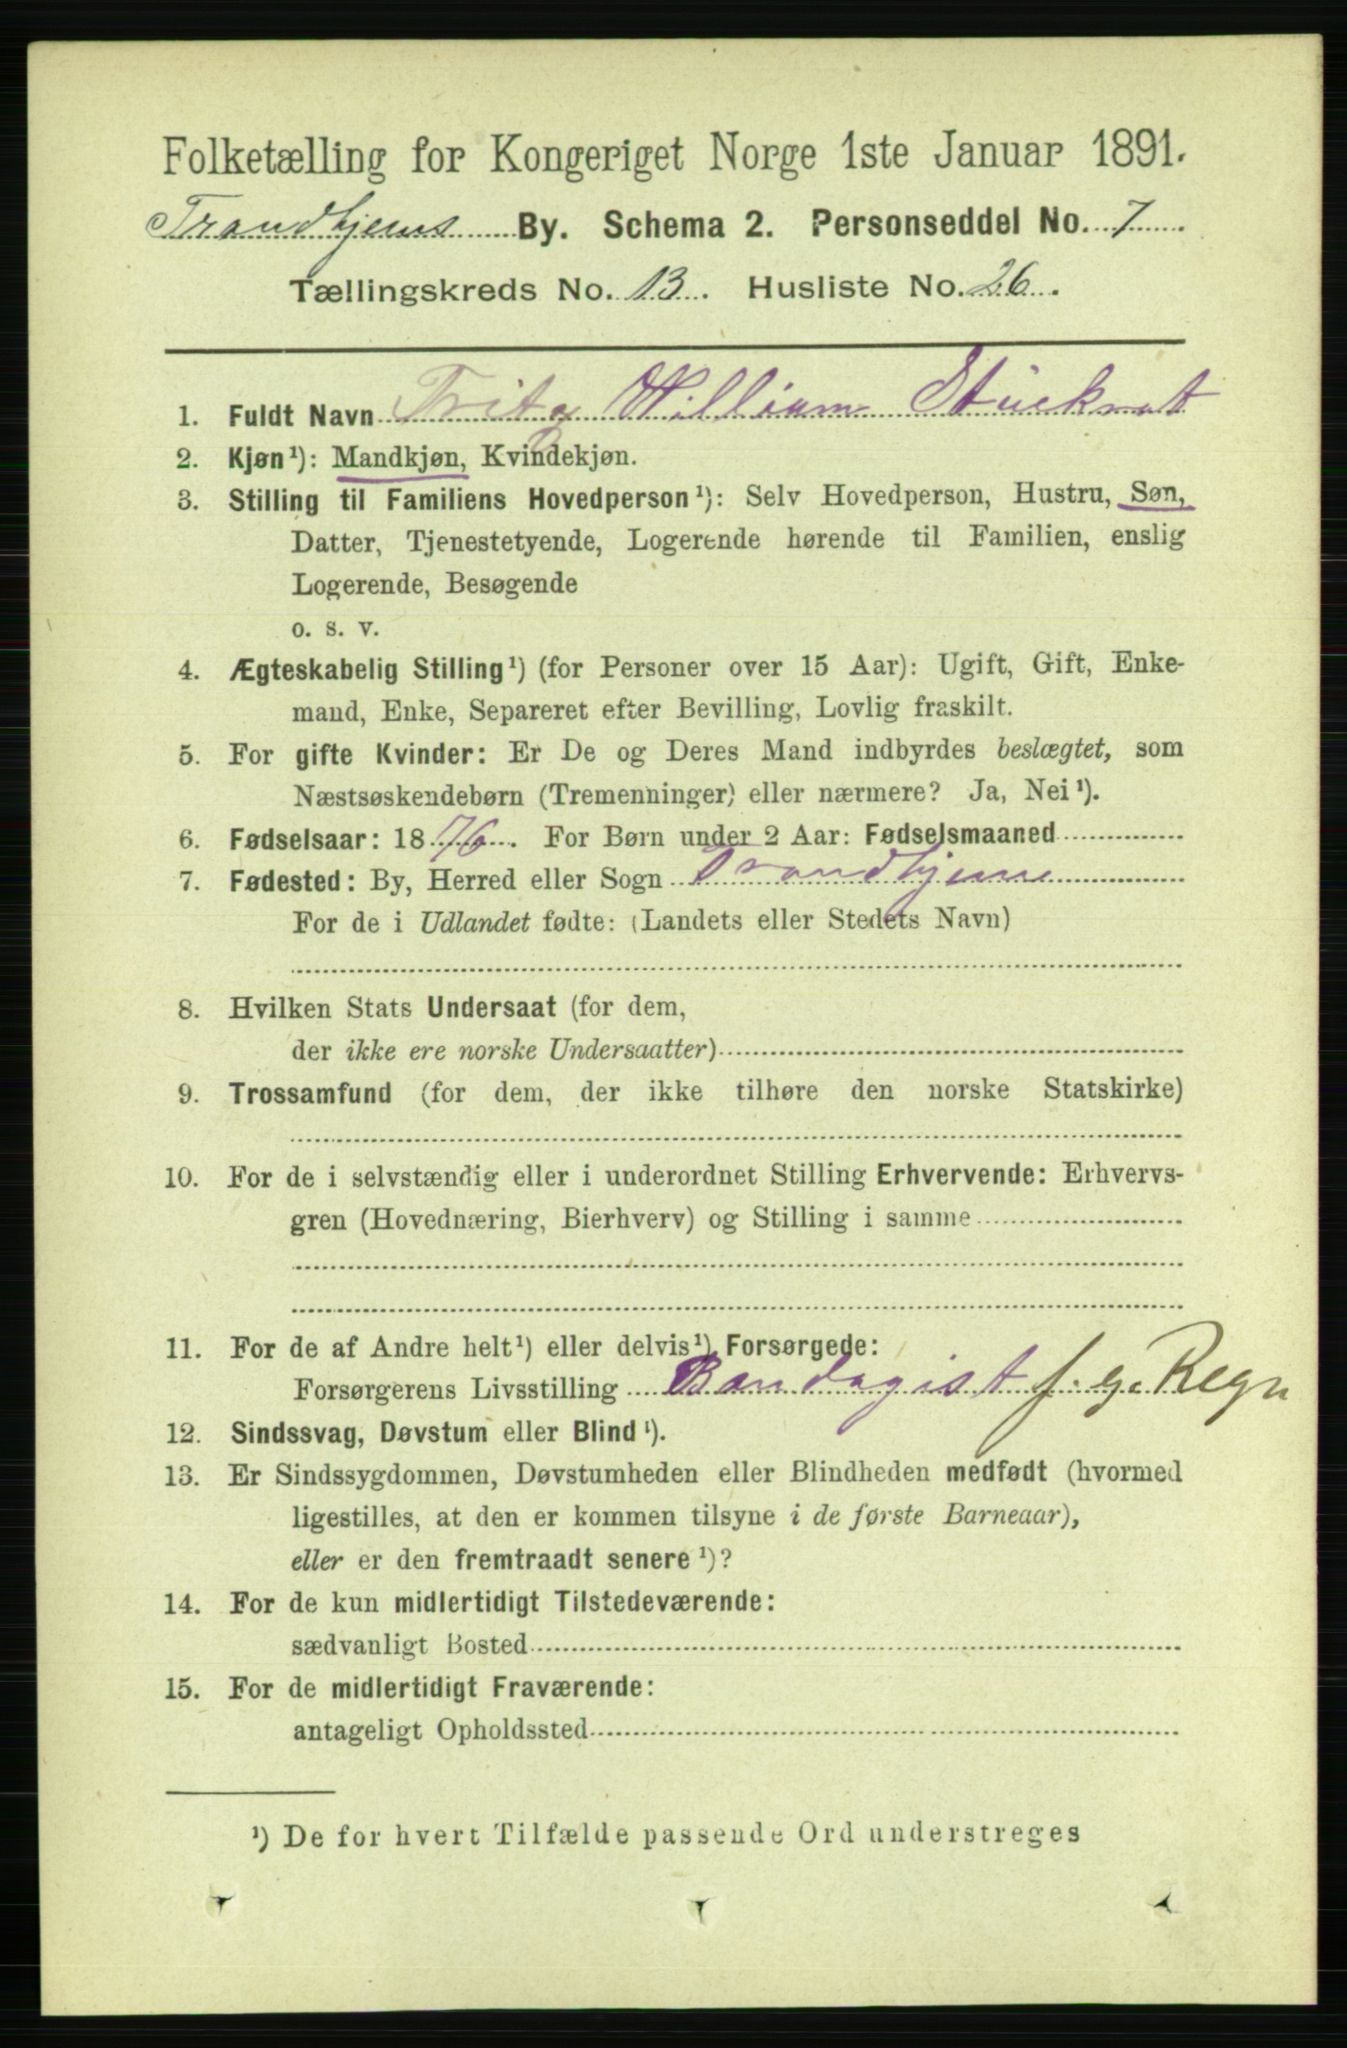 Folketælling for Kongeriget Norge 1ste Januar 1891.
Trondhjems By. Schema 2. Personseddel No. 7
Tællingskreds No. 13. Husliste No. 26.
1. Fuldt Navn Fritz William Stückrat
2. Kjøn¹): Mandkjøn, Kvindekjøn.
3. Stilling til Familiens Hovedperson¹): Selv Hovedperson, Hustru, Søn,
Datter, Tjenestetyende, Logerende hørende til Familien, enslig
Logerende, Besøgende
o. s. v.
4. Ægteskabelig Stilling¹) (for Personer over 15 Aar): Ugift, Gift, Enke-
mand, Enke, Separeret efter Bevilling, Lovlig fraskilt.
5. For gifte Kvinder: Er De og Deres Mand indbyrdes beslægtet, som
Næstsøskendebørn (Tremenninger) eller nærmere? Ja, Nei¹).
6. Fødselsaar: 1876. For Børn under 2 Aar: Fødselsmaaned
7. Fødested: By, Herred eller Sogn Trondhjem
For de i Udlandet fødte: (Landets eller Stedets Navn)
8. Hvilken Stats Undersaat (for dem,
der ikke ere norske Undersaatter)
9. Trossamfund (for dem, der ikke tilhøre den norske Statskirke)
10. For de i selvstændig eller i underordnet Stilling Erhvervende: Erhvervs-
gren (Hovednæring, Bierhverv) og Stilling i samme
11. For de af Andre helt¹) eller delvis¹) Forsørgede:
Forsørgerens Livsstilling Bandagist f. eg. Regn
12. Sindssvag, Døvstum eller Blind¹).
13. Er Sindssygdommen, Døvstumheden eller Blindheden medfødt (hvormed
ligestilles, at den er kommen tilsyne i de første Barneaar),
eller er den fremtraadt senere¹)?
14. For de kun midlertidigt Tilstedeværende:
sædvanligt Bosted
15. For de midlertidigt Fraværende:
antageligt Opholdssted
¹) De for hvert Tilfælde passende Ord understreges